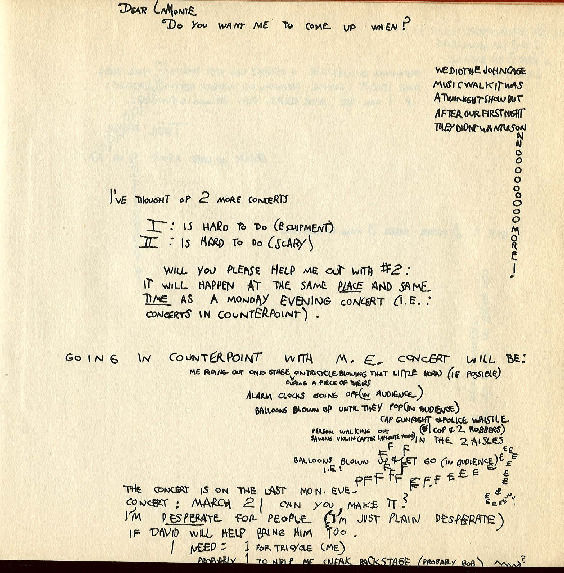 DEAR LAMONTE
DO YOU WANT ME TO COME UP WHEN?
WE DID THE JOHN CAGE
MUSIC WALK IT WAS
A TWO NIGHT SHOW BUT
AFTER OUR FIRST NIGHT
THEY DIDNT WANT US ON
NNOOOOOOOO MORE!
I'VE THOUGHT OF 2 MORE CONCERTS
I : IS HARD TO DO (EQUIPMENT)
II : IS HARD TO DO (SCARY)
WILL YOU PLEASE HELP ME OUT WITH #2:
IT WILL HAPPEN AT THE SAME PLACE AND SAME
TIME AS A MONDAY EVENING CONCERT (I.E.:
CONCERTS IN COUNTERPOINT).
GOING IN COUNTERPOINT WITH M. E. CONCERT WILL BE:
ME RIDING OUT ONTO STAGE ON TRICYCLE BLOWING THAT LITTLE HORN (IF POSSIBLE)
DURING A PIECE OF THEIRS
ALARM CLOCKS GOING OFF (IN AUDIENCE)
BALLOONS BLOWN UP UNTIL THEY POP (IN AUDIENCE)
CAP GUNFIGHT & POLICE WHISTLE
(1 COP & 2 ROBBERS)
PERSON WALKING
SAWING VIOLIN (AFTER LAMONTE YOUNG) IN THE 2 AISLES
BALLOONS BLOWN UP & LET GO (IN AUDIENCE)
I.E.: PFFFFFFFEEEEEEEEEEEE
THE CONCERT IS ON THE LAST MON. EVE.
CONCERT: MARCH 21 CAN YOU MAKE IT?
I'M DESPERATE FOR PEOPLE (I'M JUST PLAIN DESPERATE)
IF DAVID WILL HELP BRING HIM TOO.
I NEED: 1 FOR TRICYCLE (ME)
PROBABLY 1 TO HELP ME SNEAK BACKSTAGE (PROBABLY BOB)